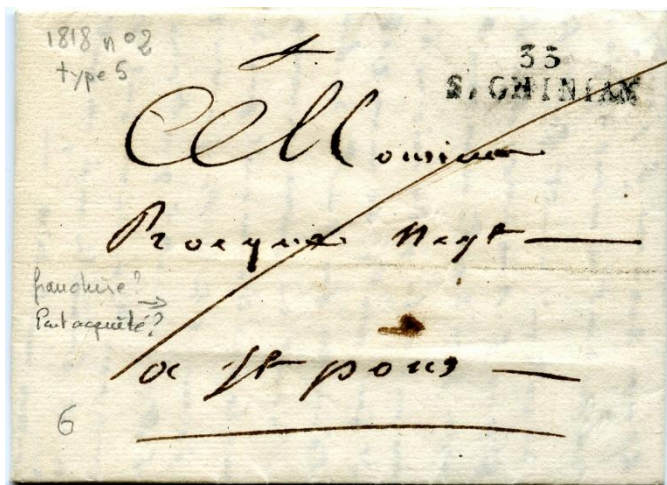 1818 n°2
type 5
33
S. CHINIAN
A Monsieur
Negt
franchise?
Port acquité?
a St pons
6